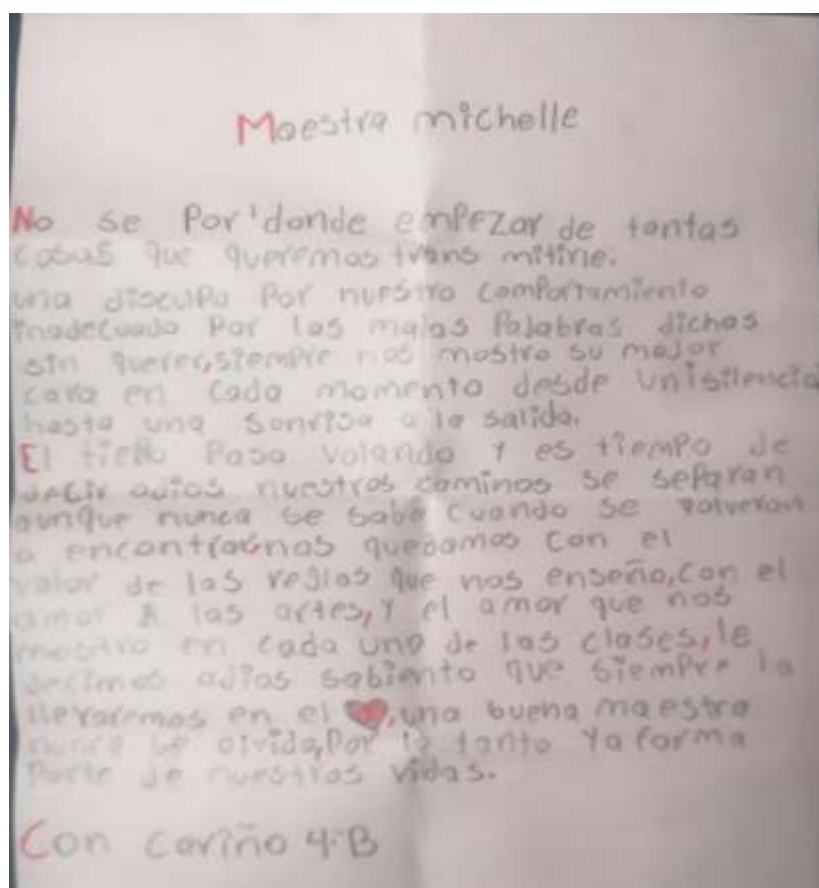 Maestra michelle
No se Por'donde empezar de tantas
cosas que queremos trans mitirle.
una disculpa Por nuestro comportamiento
inadecuado Por las malas Palabras dichas
sin querer, siempre nos mostro su mejor
cara en cada momento desde un silencio
hasta una sonrisa a la salida.
El Paso volando Y es tiempo de
decir adios nuestros caminos se separan
aunque nunca se sabe cuando se volveran
a quedamos con el
valor de las reglas que nos enseño, con el
amor a las artes, Y el amor que nos
mostro en cada una de las clases, le
decimos adios sabiento que siempre la
llevaremos en el ❤, una buena maestra
nunca se olvida, Por lo tanto Ya forma
Parte de nuestras vidas.
Con cariño 4·B